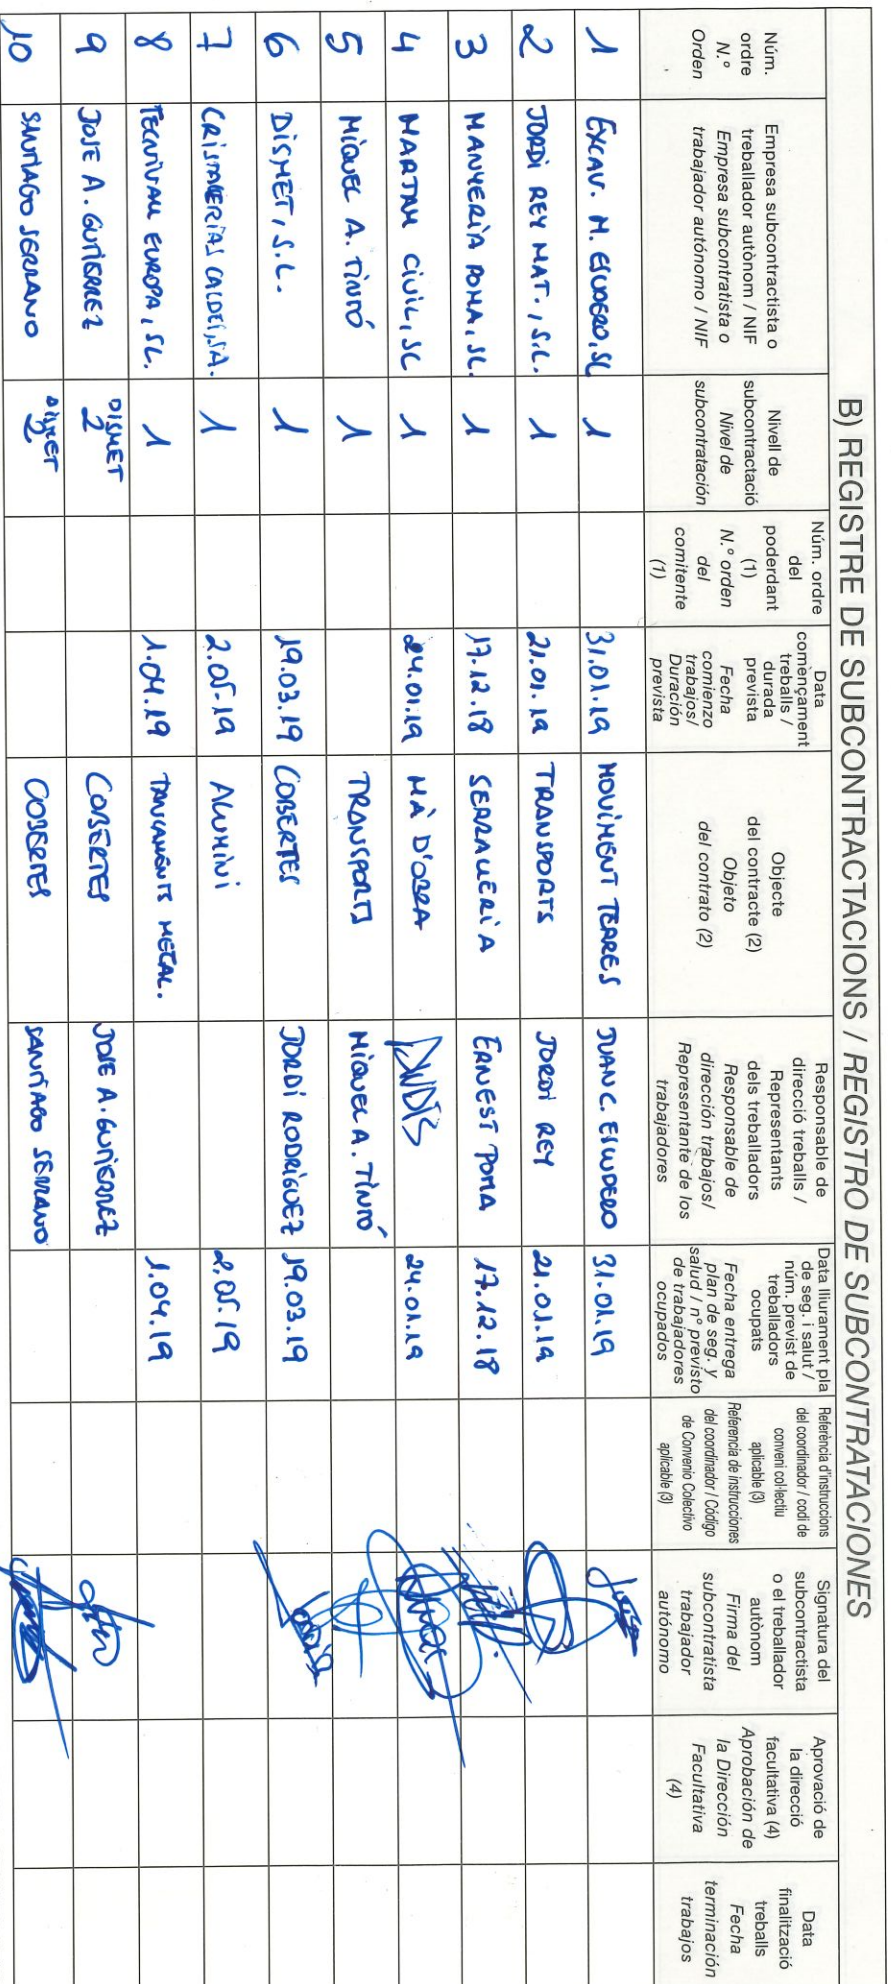 B) REGISTRE DE SUBCONTRACTACIONS / REGISTRO DE SUBCONTRATACIONES
Núm.
ordre
N.º
Orden
Empresa subcontractista o
treballador autònom / NIF
Empresa subcontratista o
trabajador autónomo / NIF
Nivell de
subcontractació
Nivel de
subcontratación
Núm. ordre
del
poderdant
(1)
N.º orden
del
comitente
(1)
Data
començament
treballs /
durada
prevista
Fecha
comienzo
trabajos/
Duración
prevista
Objecte
del contracte (2)
Objeto
del contrato (2)
Responsable de
direcció treballs /
Representants
dels treballadors
Responsable de
dirección trabajos/
Representante de los
trabajadores
Data lliurament pla
de seg. i salut /
núm. previst de
treballadors
ocupats
Fecha entrega
plan de seg. y
salud / nº previsto
de trabajadores
ocupados
Referència d'instruccions
del coordinador / codi de
conveni col·lectiu
aplicable (3)
Referencia de instrucciones
del coordinador / Código
de Convenio Colectivo
aplicable (3)
Signatura del
subcontractista
o el treballador
autònom
Firma del
subcontratista
trabajador
autónomo
Aprovació de
la direcció
facultativa (4)
Aprobación de
la Dirección
Facultativa
(4)
Data
finalització
treballs
Fecha
terminación
trabajos
1 EXCAV. M. ESCUDERO, SL 1 31.01.19 MOVIMENT TERRES JUAN C. ESCUDERO 31.01.19
2 JORDI REY MAT., S.L. 1 21.01.19 TRANSPORTS JORDI REY 21.01.19
3 MANYERIA POMA, SL. 1 17.12.18 SERRALLERIA ERNEST POMA 17.12.18
4 MARTAM CIVIL, SL 1 24.01.19 MÀ D'OBRA 24.01.19
5 MIQUEL A. TINTÓ 1 TRANSPORTS MIQUEL A. TINTÓ
6 DISMET, S.L. 1 19.03.19 COBERTES JORDI RODRÍGUEZ 19.03.19
7 CRISTALERIAS CALDES, SA. 1 2.05.19 ALUMINI 2.05.19
8 TECNIVALL EUROPA, SL. 1 1.04.19 TANCAMENTS METAL. 1.04.19
9 JOSE A. GUTIERREZ DISMET 2 COBERTES JOSE A. GUTIERREZ
10 SANTIAGO SERRANO DISMET 2 COBERTES SANTIAGO SERRANO